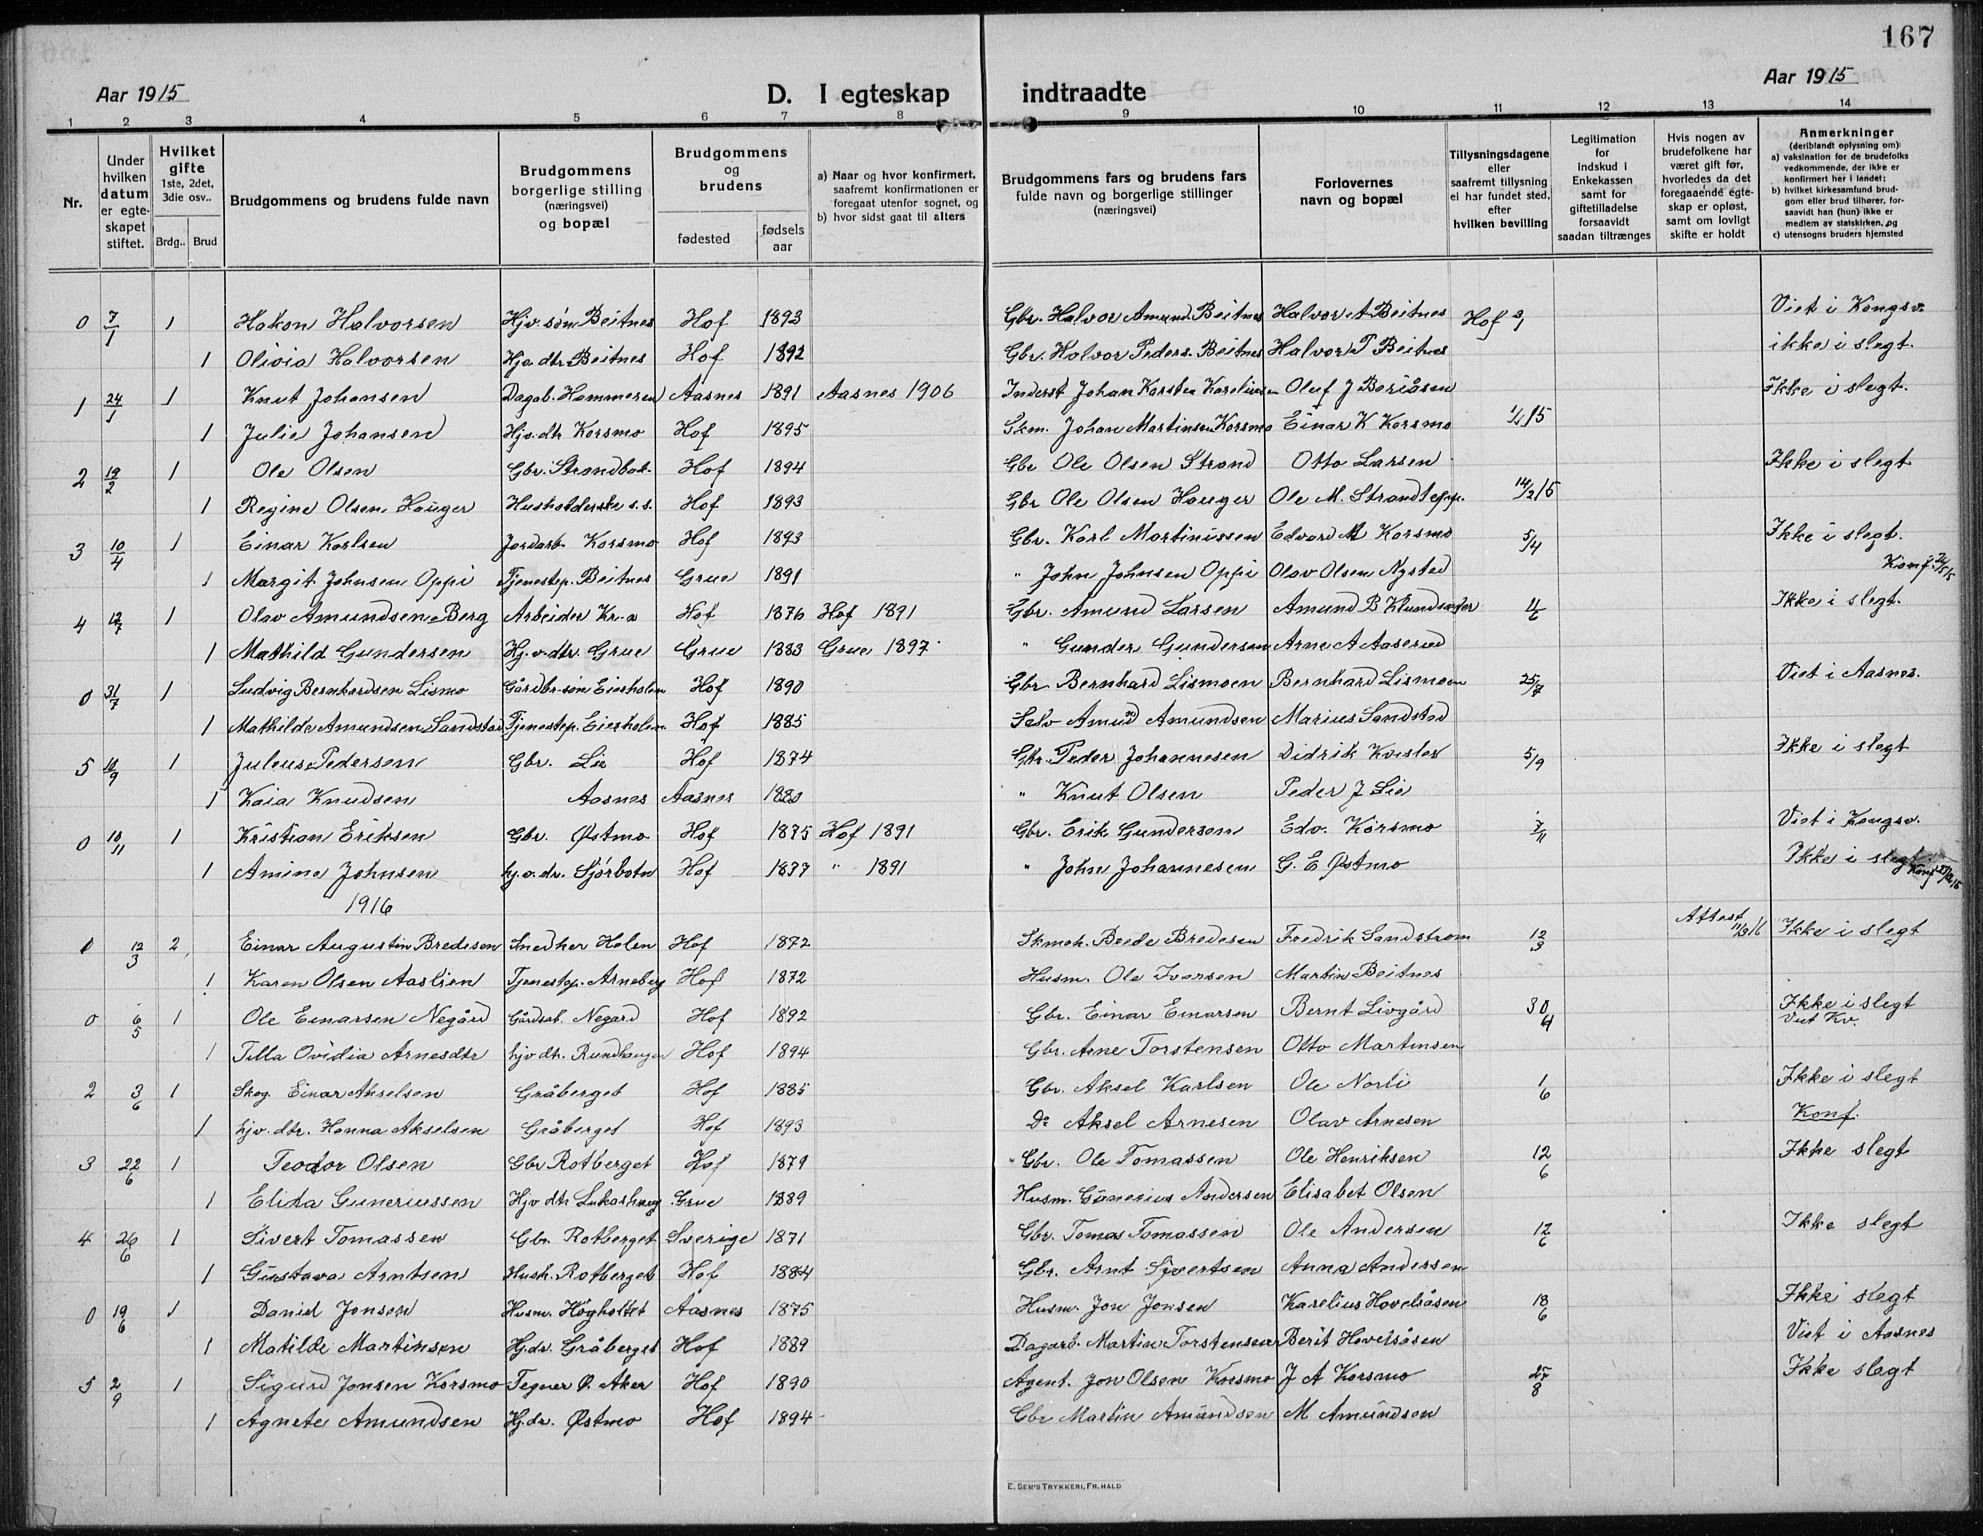 167
Aar 1915 D. I egteskap indtraadte Aar 1915
1 2 3 4 5 6 7 8 9 10 11 12 13 14
Nr.
Under hvilken datum er egteskapet stiftet.
Hvilket gifte 1ste, 2det, 3die osv..
Brdg.. Brud
Brudgommens og brudens fulde navn
Brudgommens borgerlige stilling (næringsvei) og bopæl
Brudgommens og brudens
fødested
fødselsaar
a) Naar og hvor konfirmert, saafremt konfirmationen er foregaat utenfor sognet, og
b) hvor sidst gaat til alters
Brudgommens fars og brudens fars fulde navn og borgerlige stillinger (næringsvei)
Forlovernes navn og bopæl
Tillysningsdagene eller saafremt tillysning ei har fundet sted, efter hvilken bevilling
Legitimation for indskud i Enkekassen samt for giftetilladelse forsaavidt saadan tiltrænges
Hvis nogen av brudefolkene har været gift før, hvorledes da det foregaaende egteskap er opløst, samt om lovligt skifte er holdt
Anmerkninger (deriblandt oplysning om):
a) vaksination for de brudefolks vedkommende, der ikke er konfirmert her i landet;
b) hvilket kirkesamfund brudgom eller brud tilhører, forsaavidt han (hun) ikke er medlem av statskirken, og
c) utensogns bruders hjemsted
0 7/1 1 Hakon Halvorsen Hjv. søn Beitnes Hof 1893 Gbr. Halvor Amund. Beitnes Halvor A Beitnes Hof 3/1 Viet i Kongsv.
1 Olivia Halvorsen Hjv. dtr. Beitnes Hof 1892 Gbr. Halvor Peders. Beitnes Halvor P Beitnes ikke i slegt.
1 24/1 1 Knut Johansen Dagab. Hammeren Aasnes 1891 Aasnes 1906 Inderst Johan Karsten Oluf J Ikke i slegt.
1 Julie Johansen Hjv. dtr Korsmo Hof 1895 Skm. Johan Martinsen Korsmo Einar K Korsmo
2 19/2 1 Ole Olsen Gbr. Hof 1894 Gbr Ole Olsen Strand Otto Larsen Ikke i slegt
1 Regine Olsen Hauger Husholderske s.s. Hof 1893 Gbr Ole Olsen Hauger Ole M. 14/2 15
3 10/4 1 Einar Karlsen Jordarb. Korsmo Hof 1893 Gbr. Karl Martinussen Edvard M Korsmo 5/4 Ikke i slegt.
1 Margit Johnsen Oppi Tjenestep. Beitnes Grue 1891 " John Johnsen Oppi Olav Olsen Nysted
4 1 Olav Amundsen Berg Arbeider Kr.a Hof 1876 Hof 1891 Gbr. Amund Larsen Amund B 11/6 Ikke i slegt.
1 Mathild Gundersen Hj.v.dtr. Grue Grue 1883 Grue 1897 " Gunder Gundersen Arne A Aaserud
0 31/7 1 Ludvig Bernhardsen Lismo Gårdbr. søn Eiesholen Hof 1890 Gbr Bernhard Lismoen Bernhard Lismoen 25/7 Viet i Aasnes.
1 Mathilde Amundsen Sandstad Tjenestep. Eiesholen Hof 1885 Selv Amund Amundsen Marius Sandstad
5 1 Juleus Pedersen Gbr. Lie Hof 1874 Gbr. Peder Johannesen Didrik 5/9 Ikke i slegt
1 Kaia Knudsen Aasnes Aasnes 1880 " Knut Olsen Peder J Lie
0 10/11 1 Kristian Eriksen Gbr. Østmo Hof 1875 Hof 1891 Gbr. Erik Gundersen Edv. Korsmo 7/11 Viet i Kongsv.
1 Amine Johnsen hj.v.dr. Sjørbotn Hof 1877 " 1891 " John Johannesen G. E Østmo Ikke i slegt
1916
0 12/3 2 Einar Augustin Bredesen Snedker Holen Hof 1872 Bredesen Fredrik Sandstrøm 12/3 Attest Ikke i slegt
1 Karen Olsen Aaslien Tjenestep. Arneberg Hof 1872 Husm. Ole Iversen Martin Beitnes
0 6/5 1 Ole Einarsen Negård Gårdsb. Negard Hof 1892 Gbr. Einar Einarsen Bernt Livgård 30/4 Ikke i slegt Viet Kv.
1 Tilla Ovidia Arnesdtr hjv dtr. Rundhaugen Hof 1894 Gbr. Arne Torstensen Otto Martinsen
2 3/6 1 Skog. Einar Akselsen Gråberget Hof 1885 Gbr. Aksel Karlsen Ole Norli 1/6 Ikke i slegt
1 hjv. dtr. Hanna Akselsen Gråberget Hof 1893 Do Aksel Arnesen Olav Arnesen Konf.
3 22/6 1 Teodor Olsen Gbr Rotberget Hof 1879 Gbr. Ole Tomassen Ole Henriksen 12/6 Ikke slegt
1 Elida Guneriussen Hjv dtr Lukashaug Grue 1889 Husm. Gunerius Andersen Elisabet Olsen
4 26/6 1 Sivert Tomassen Gbr. Rotberget Sverige 1871 Gbr. Tomas Tomassen Ole Andersen 12/6 Ikke slegt
1 Gustava Arntsen Hush. Rotberget Hof 1884 Gbr. Arnt Syvertsen Anna Andersen
0 19/6 1 Daniel Jonsen Husm. Høgholtet Aasnes 1875 Husm. Jon Jonsen Karelius Hovelsåsen 18/6 Ikke i slegt
1 Matilde Martinsen Hj.dr. Gråberget Hof 1889 Dagarb. Martin Torstensen Berit Hovelsåsen Viet i Aasnes
5 2/9 1 Sigurd Jonsen Korsmo Tegner Ø. Aker Hof 1890 Agent. Jon Olsen Korsmo J A Korsmo 27/8 Ikke slegt
1 Agnete Amundsen Hj.dr. Østmo Hof 1894 Gbr Martin Amundsen M Amundsen
E. SEM'S TRYKKERI, FR.HALD